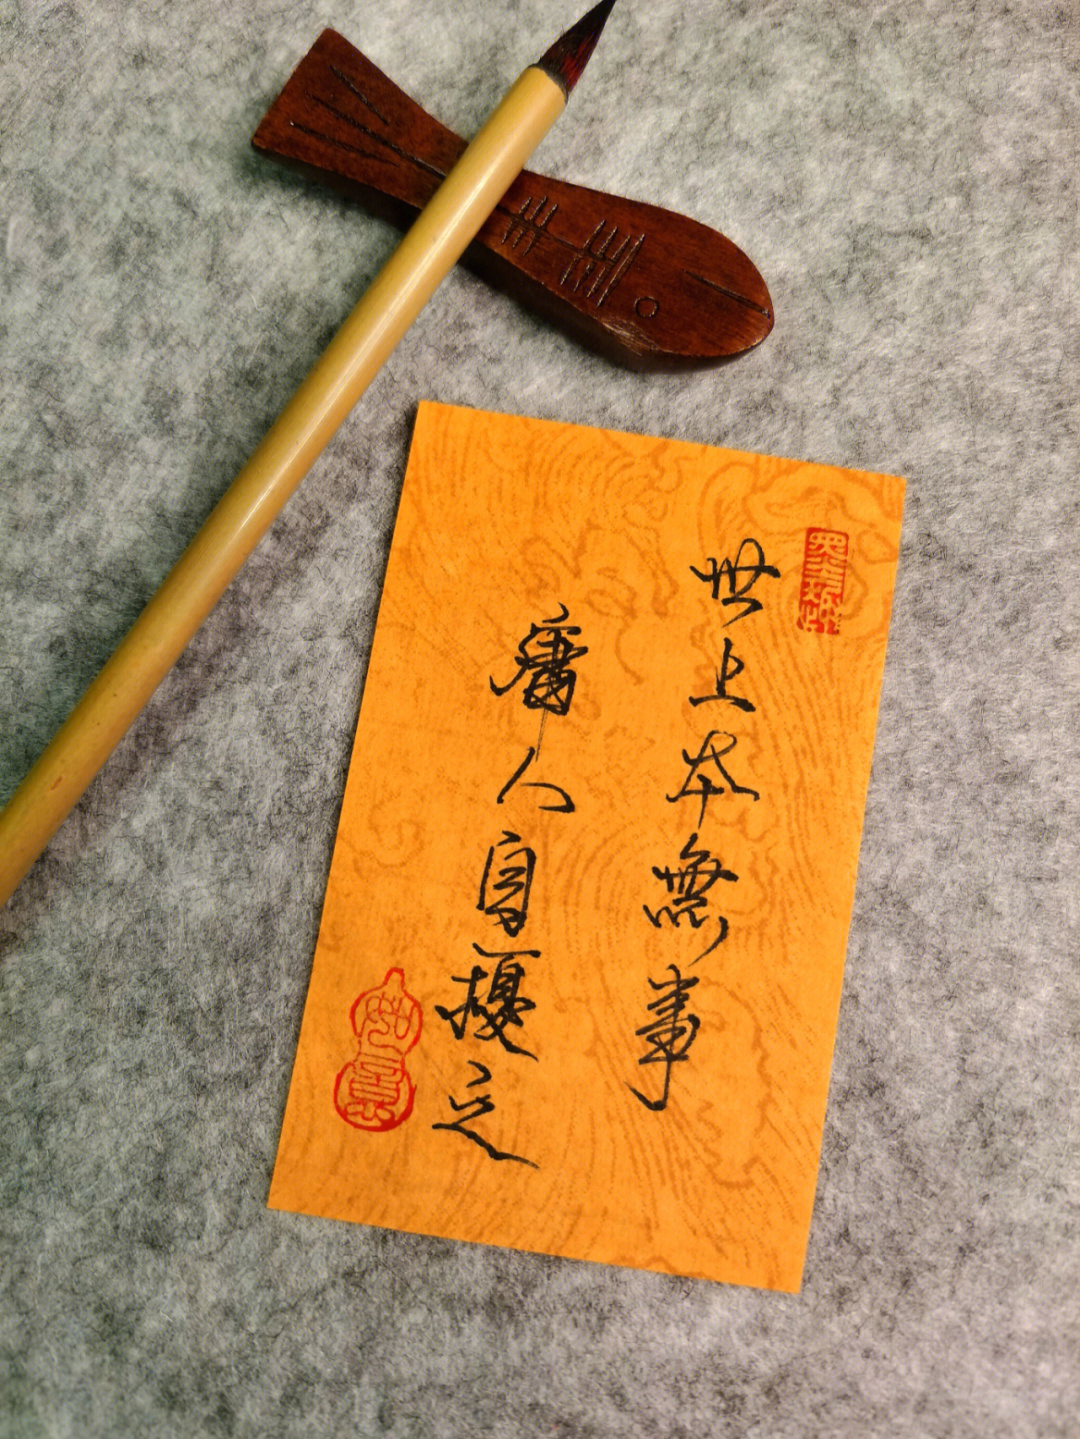 世上本無事
庸人自擾之